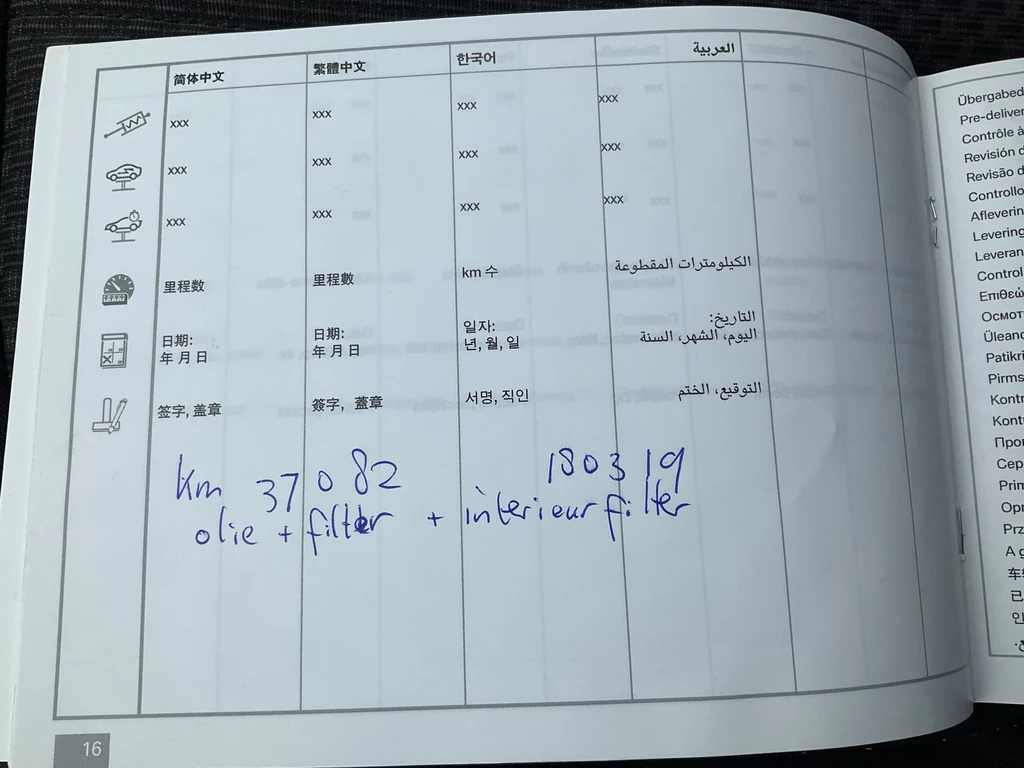 简体中文 繁體中文 한국어 العربية
xxx xxx xxx xxx
xxx xxx xxx xxx
xxx xxx xxx xxx
里程数 里程數 km 수 الكيلومترات المقطوعة
日期: 日期: 일자: التاريخ:
年 月 日 年 月 日 년, 월, 일 اليوم، الشهر، السنة
签字, 盖章 簽字, 蓋章 서명, 직인 التوقيع، الختم
km 37082 180319
olie + filter + interieurfilter
16
Übergabed
Pre-deliver
Contrôle à
Revisión d
Revisão d
Controllo
Aflevering
Levering
Leveran
Control
Επιθεώ
Осмот
Üleand
Patikri
Pirms
Kontr
Kont
Про
Сер
Prim
Opr
Prz
A g
车
已
인